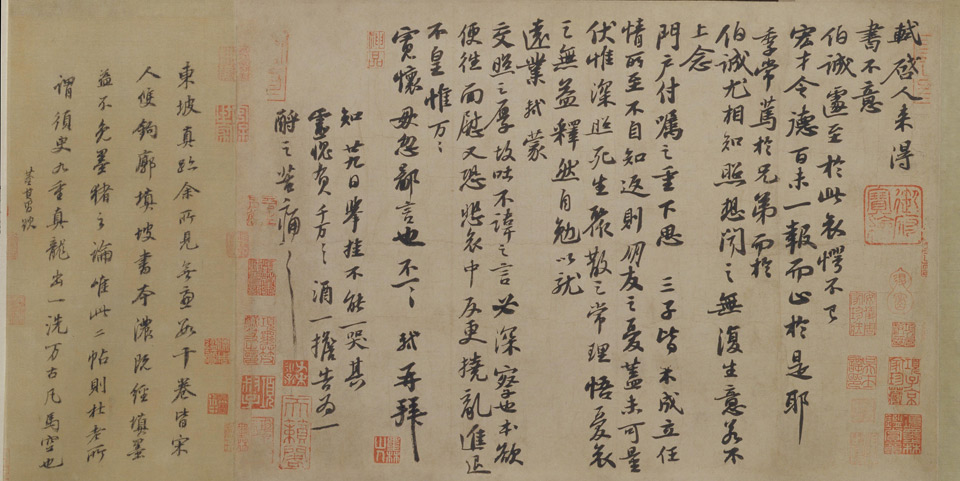 軾啓人来得
書不意
伯誠遽至於此哀愕不已
宏才令德百未一報而止於是耶
季常篤於兄弟而於
伯誠尤相知照想聞之無復生意若不
上念
門户付囑之重下思三子皆未成立任
情所至不自知返則朋友之憂蓋未可量
伏惟深照死生聚散之常理悟憂哀
之無益釋然自勉以就
遠業軾蒙
交照之厚故吐不諱之言必深察也本欲
便往面慰又恐悲哀中反更撓亂進退
不皇惟万〻
寬懷毋忽鄙言也不一〻軾再拜
知廿九日舉挂不能一哭其
靈愧負千万〻酒一擔告為一
酹之苦痛〻
東坡真跡余所見無慮數十卷皆宋
人雙鉤廓填坡書本濃既經填墨
益不免墨豬之論惟此二帖則杜老所
謂須臾九重真龍出一洗万古凡馬空也
董其昌題